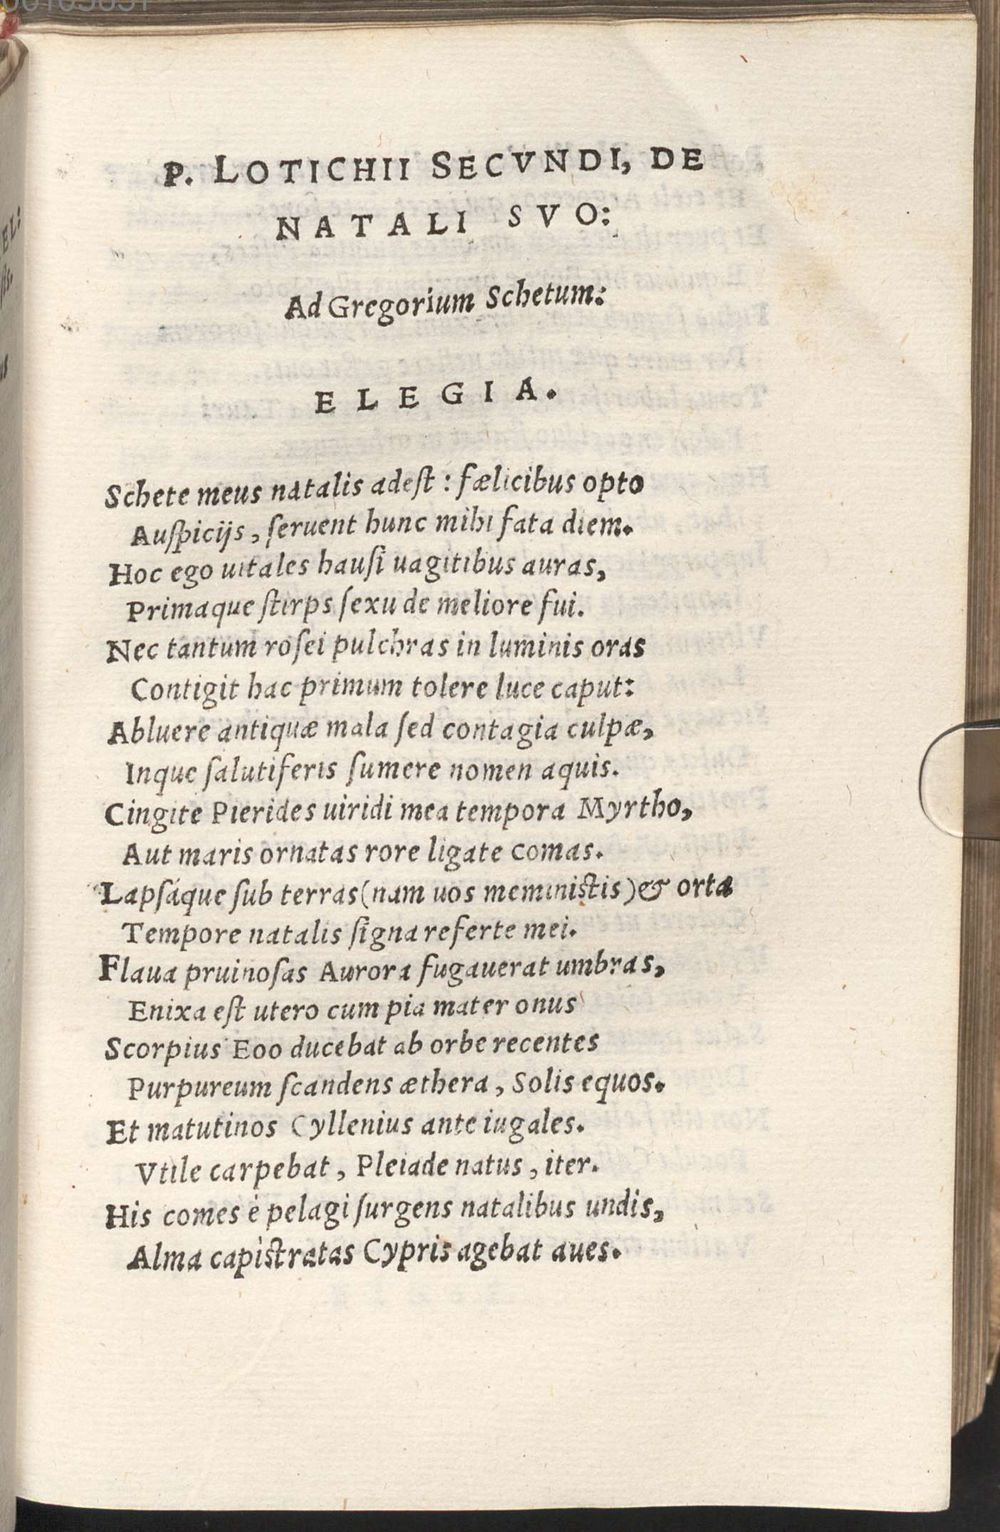 P. LOTICHII SECVNDI, DE
NATALI SVO:
Ad Gregorium Schetum:
ELEGIA.
Schete meus natalis adeſt : fælicibus opto
Auſpicijs, ſeruent hunc mihi fata diem.
Hoc ego uitales hauſi uagitibus auras,
Primaque ſtirps ſexu de meliore fui.
Nec tantum roſei pulchras in luminis oras
Contigit hac primum tolere luce caput:
Abluere antiquæ mala ſed contagia culpæ,
Inque ſalutiferis ſumere nomen aquis.
Cingite Pierides uiridi mea tempora Myrtho,
Aut maris ornatas rore ligate comas.
Lapſáque ſub terras (nam uos meminiſtis) & orta
Tempore natalis ſigna referte mei.
Flaua pruinoſas Aurora fugauerat umbras,
Enixa eſt utero cum pia mater onus
Scorpius Eoo ducebat ab orbe recentes
Purpureum ſcandens æthera, Solis equos.
Et matutinos Cyllenius ante iugales.
Vtile carpebat, Pleiade natus, iter.
His comes è pelagi ſurgens natalibus undis,
Alma capiſtratas Cypris agebat aues.